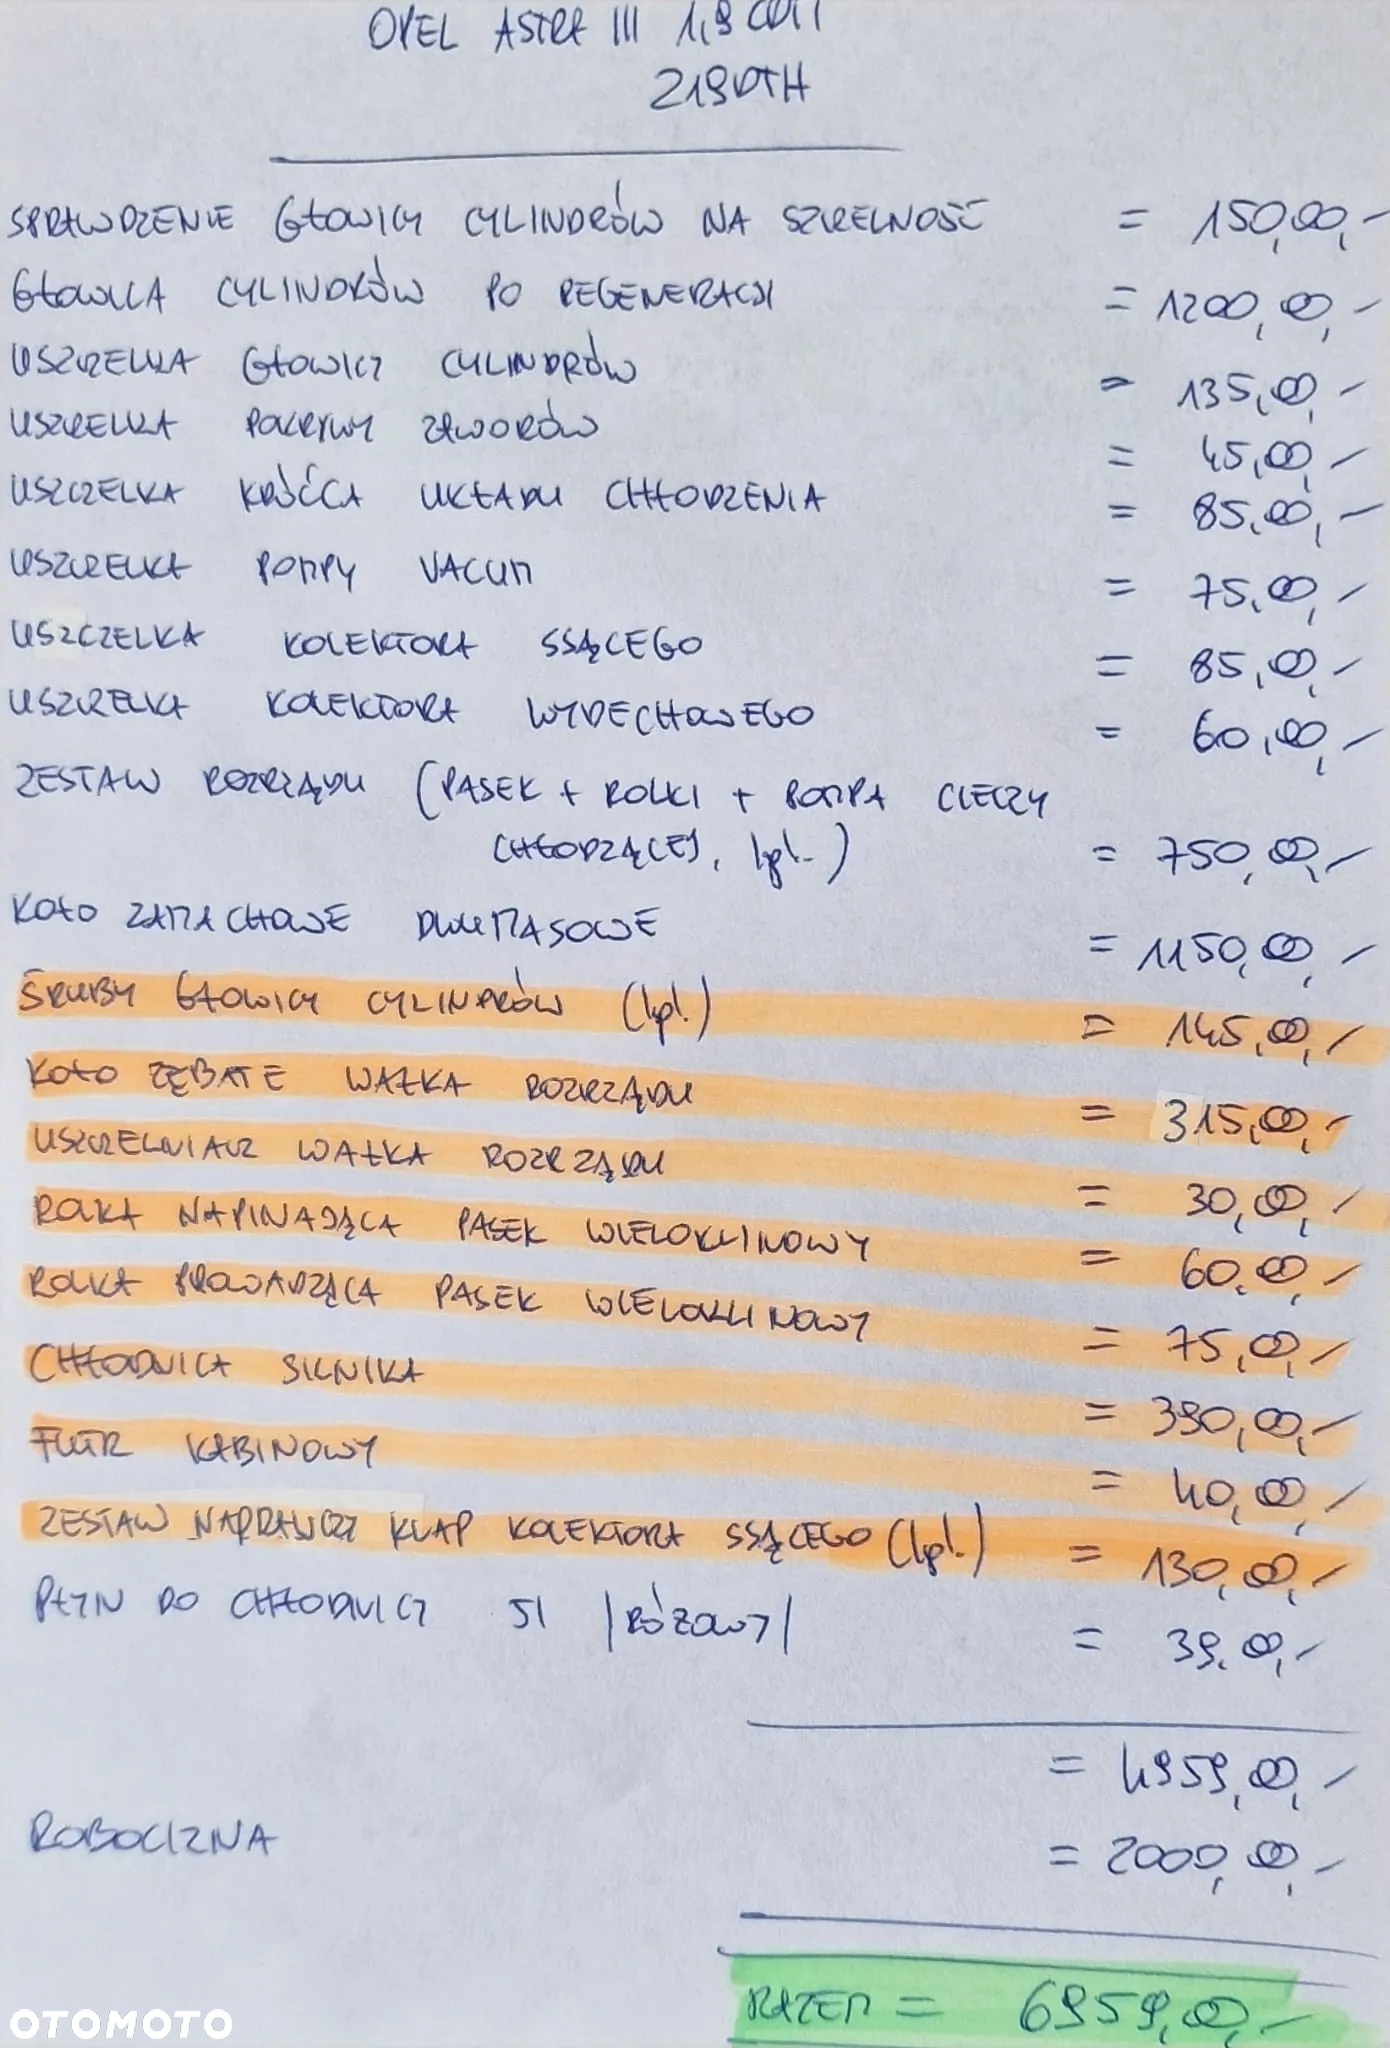 OPEL ASTRA III 1,9 CDTI
Z19DTH
SPRAWDZENIE GŁOWICY CYLINDRÓW NA SZCZELNOŚĆ = 150,00,-
GŁOWICA CYLINDRÓW PO REGENERACJI = 1200,00,-
USZCZELKA GŁOWICY CYLINDRÓW = 135,00,-
USZCZELKA POKRYWY ZAWORÓW = 45,00,-
USZCZELKA KRÓĆCA UKŁADU CHŁODZENIA = 85,00,-
USZCZELKA POMPY VACUM = 75,00,-
USZCZELKA KOLEKTORA SSĄCEGO = 85,00,-
USZCZELKA KOLEKTORA WYDECHOWEGO = 60,00,-
ZESTAW ROZRZĄDU (PASEK + ROLKI + POMPA CIECZY
CHŁODZĄCEJ, kpl.) = 750,00,-
KOŁO ZAMACHOWE DWUMASOWE = 1150,00,-
ŚRUBY GŁOWICY CYLINDRÓW (kpl.) = 145,00,-
KOŁO ZĘBATE WAŁKA ROZRZĄDU = 315,00,-
USZCZELNIACZ WAŁKA ROZRZĄDU = 30,00,-
ROLKA NAPINAJĄCA PASEK WIELOKLINOWY = 60,00,-
ROLKA PROWADZĄCA PASEK WIELOKLINOWY = 75,00,-
CHŁODNICA SILNIKA = 390,00,-
FILTR KABINOWY = 40,00,-
ZESTAW NAPRAWCZY KLAP KOLEKTORA SSĄCEGO (kpl.) = 130,00,-
PŁYN DO CHŁODNICY 5l |RÓŻOWY| = 39,00,-
= 4959,00,-
ROBOCIZNA = 2000,00,-
RAZEM = 6959,00,-
OTOMOTO